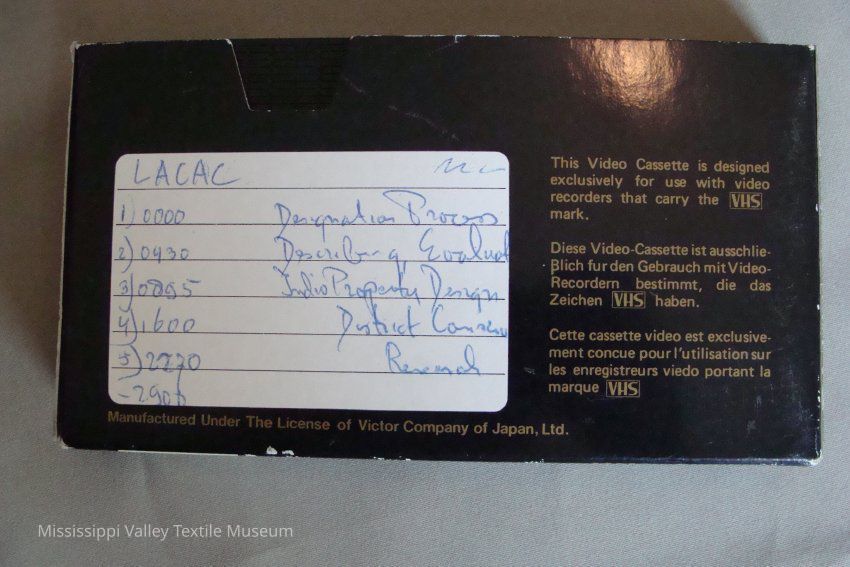 LACAC
1) 0000 Designation Process
2) 0430 Describing, Evaluat
3) 0895 Design
4) 1600 District
5) 2270 Research
-2900
Manufactured Under The License of Victor Company of Japan, Ltd.
This Video Cassette is designed
exclusively for use with video
recorders that carry the VHS
mark.
Diese Video-Cassette ist ausschlie-
ßlich fur den Gebrauch mit Video-
Recordern bestimmt, die das
Zeichen VHS haben.
Cette cassette video est exclusive-
ment concue pour l'utilisation sur
les enregistreurs viedo portant la
marque VHS
Mississippi Valley Textile Museum